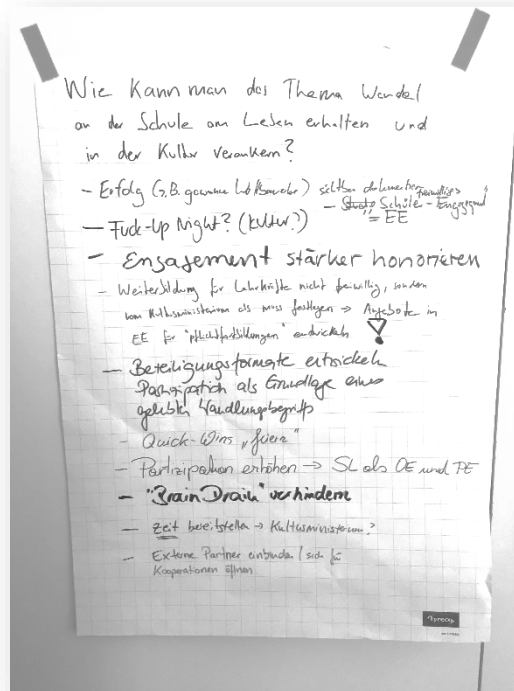 Wie kann man das Thema Wandel
an der Schule am Leben erhalten und
in der Kultur verankern?
- Erfolg (z.B. gewonnene Wettbewerbe) sichtbar dokumentieren
- Schüle - Engagement
= EE
- Fuck-Up Night? (Kultur?)
- Engagement stärker honorieren
- Weiterbildung für Lehrkräfte nicht freiwillig, sondern
vom Kultusministerium als muss festlegen → Angebote in
EE für "pflichtfortbildungen" entwickeln !
- Beteiligungsformate entwickeln
Partizipation als Grundlage eines
gelebten Wandlungsbegriffs
- Quick-Wins „feiern"
- Partizipation erhöhen → SL als OE und PE
- "Brain Drain" verhindern
- Zeit bereitstellen → Kultusministerium?
- Externe Partner einbinden / sich für
Kooperationen öffnen